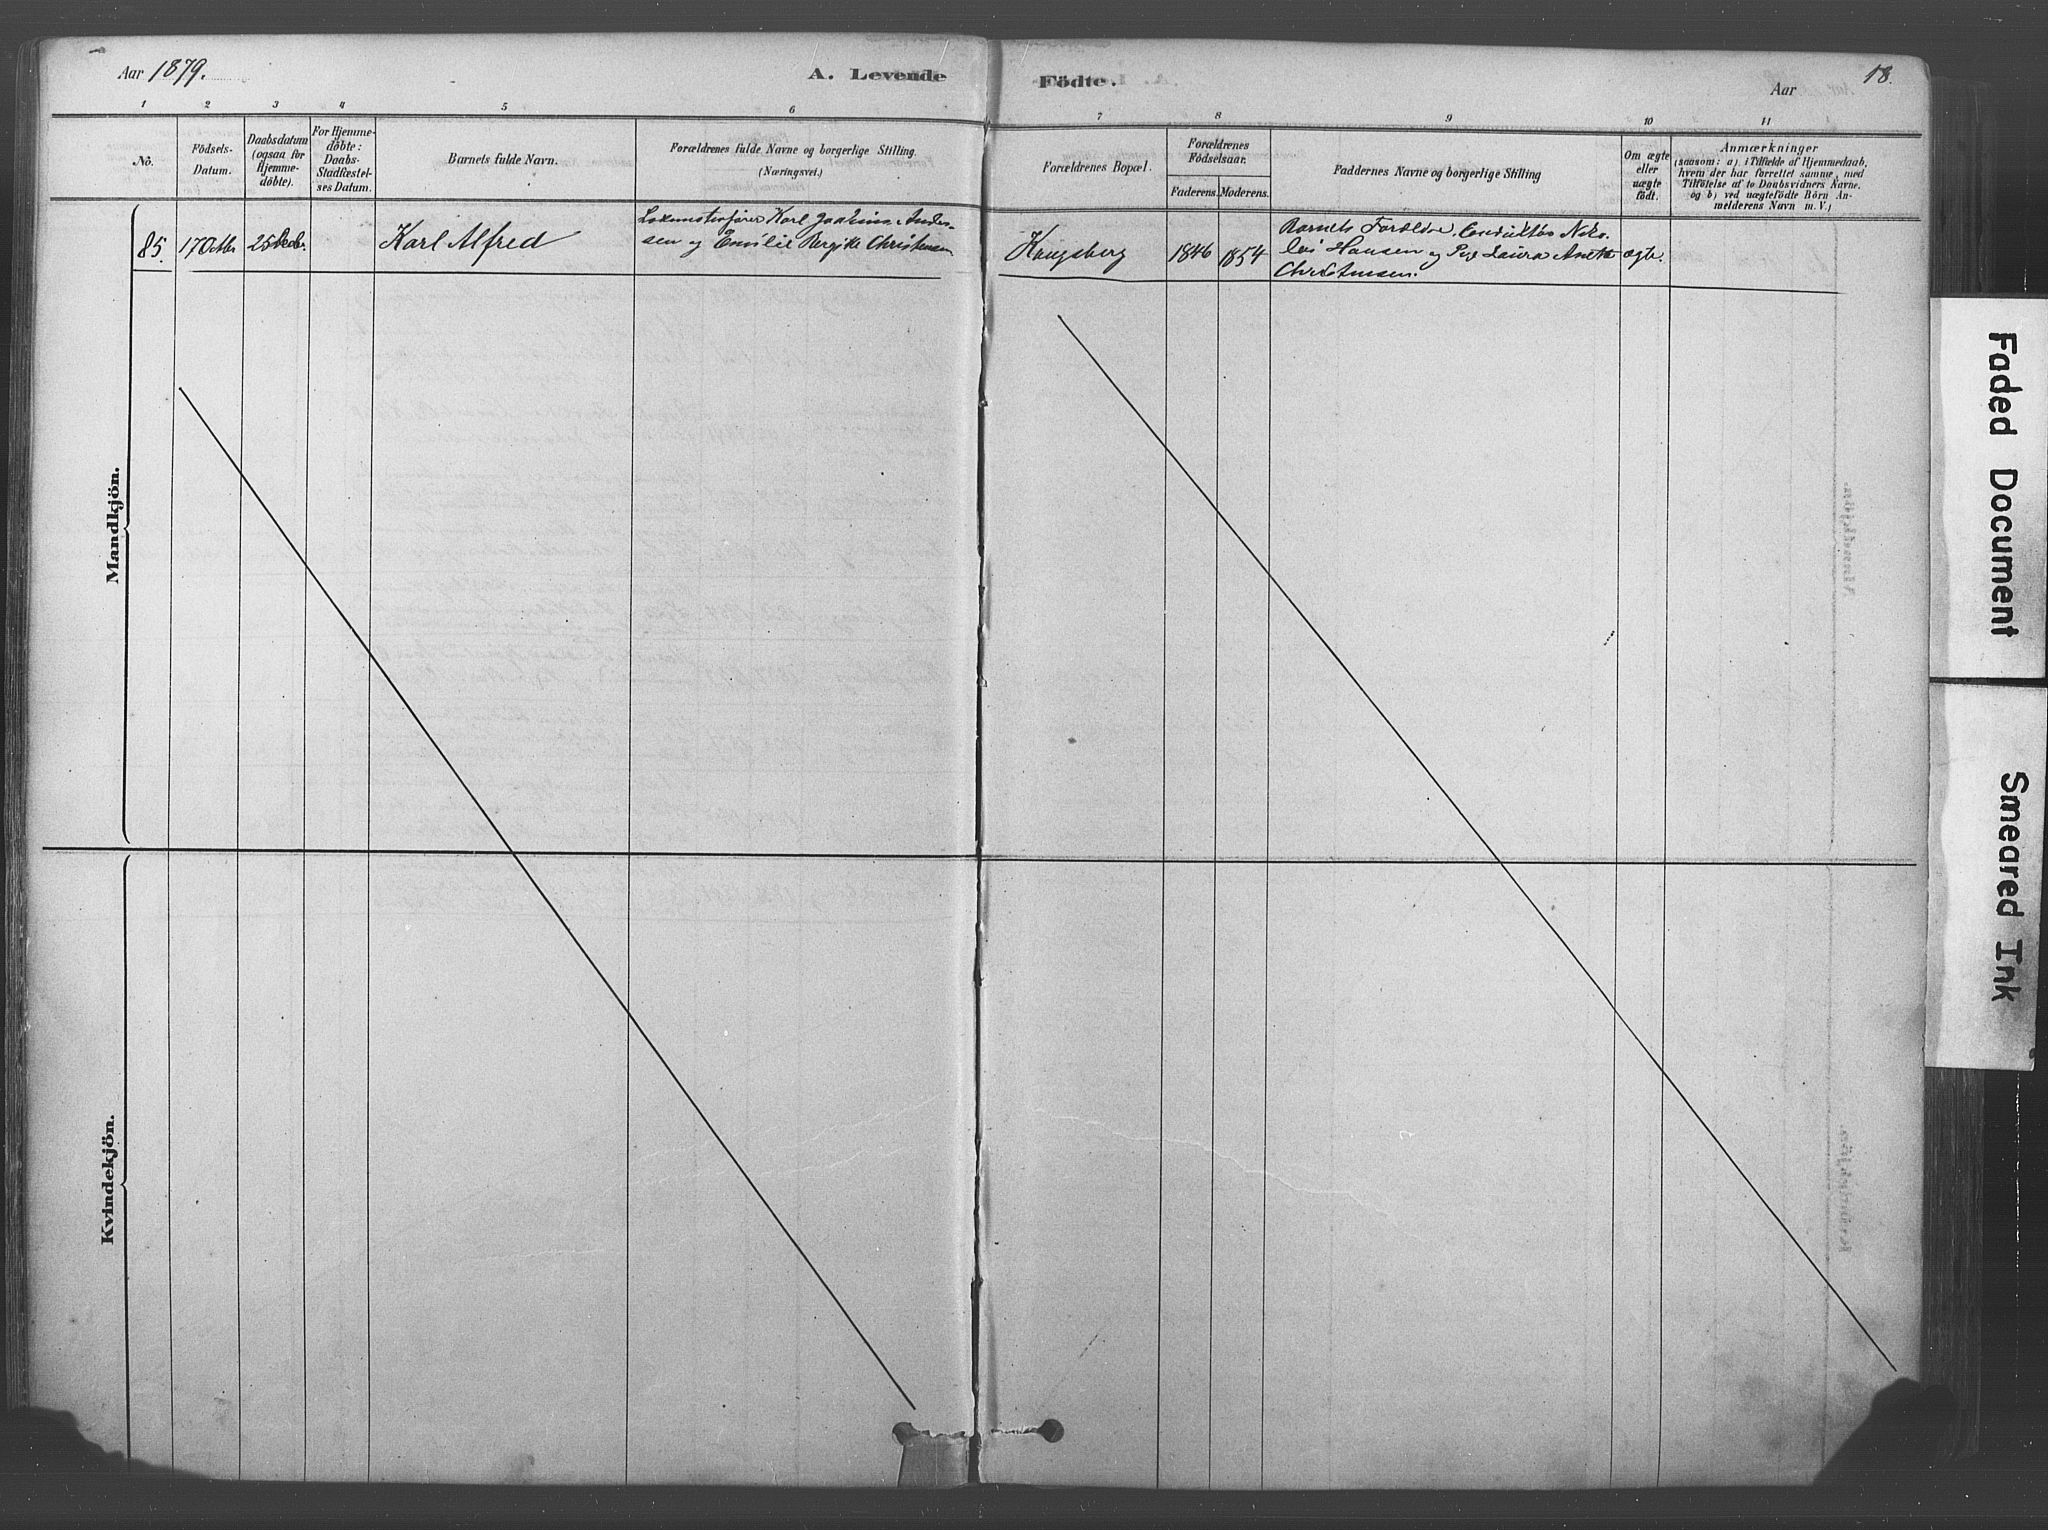 Aar 1879.
A. Levende
Födte.
Aar
18.
1 2 3 4 5 6 7 8 9 10 11
No.
Födsels-
Datum.
Daabsdatum
(ogsaa for
Hjemme-
döbte).
For Hjemme-
döbte:
Daabs-
Stadfæstel-
ses Datum.
Barnets fulde Navn.
Forældrenes fulde Navne og borgerlige Stilling.
(Næringsvei.)
Forældrenes Bopæl.
Forældrenes
Födselsaar.
Faderens. Moderens.
Faddernes Navne og borgerlige Stilling
Om ægte
eller
uægte
födt.
Anmærkninger
(saasom: a). i Tilfælde af Hjemmedaab,
hvem der har forrettet samme, med
Tilföielse af to Daabsvidners Navne.
og b) ved uægtefödte Börn An-
melderens Navn m. V.)
85. 17 Octbr 25 Decbr. Karl Alfred
Lokomotivfører Karl Joakim Ander-
sen og Emilie Bergitte Christensen
Kongsberg 1846 1854
Barnets Forældre, Conduktør Niko-
lai Hansen og Pige Laura Anette
Christensen.
ægte.
Mandkjön.
Kvindekjön.
Faded Document
Smeared Ink